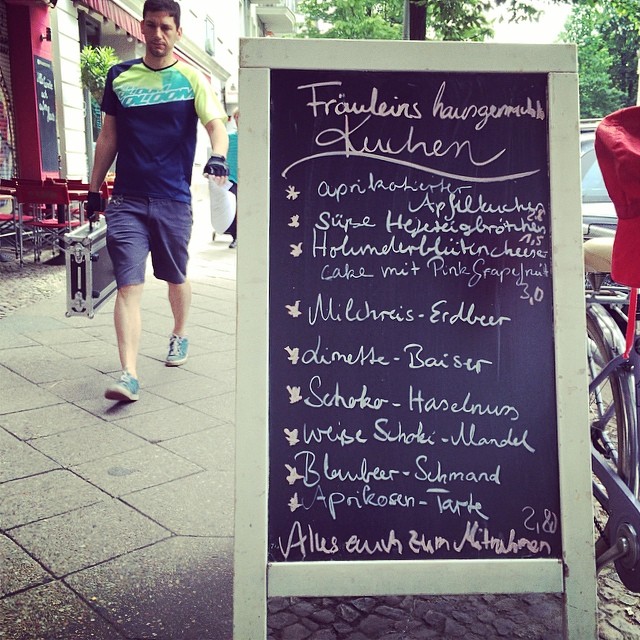 Fräuleins hausgemachte
Kuchen
aprikotierter
Apfelkuchen
Süße Hefeteigbrötchen
1,5
Holunderblütencheese
cake mit Pink Grapefruit
3,0
Milchreis-Erdbeer
Limette-Baiser
Schoko-Haselnuss
weiße Schoki-Mandel
Blaubeer-Schmand
Aprikosen-Tarte
2,80
Alles auch zum Mitnehmen